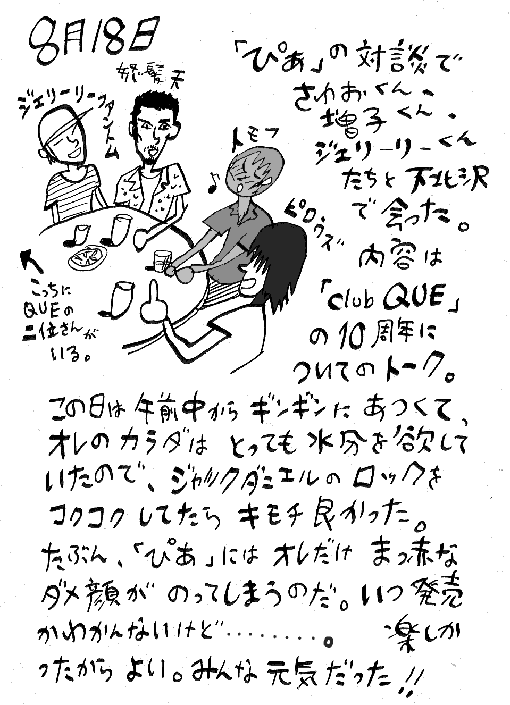 8月18日
「ぴあ」の対談で
さわおくん、
増子くん、
ジェリーリーくん
たちと下北沢
で会った。
内容は
「club QUE」
の10周年に
ついてのトーク。
ジェリーリーファントム
怒髪天
トモフ
ピロウズ
こっちに
QUEの
二位さんが
いる。
この日は午前中からギンギンにあつくて、
オレのカラダはとっても水分を欲して
いたので、ジャックダニエルのロックを
コクコクしてたらキモチ良かった。
たぶん、「ぴあ」にはオレだけまっ赤な
ダメ顔がのってしまうのだ。いつ発売
かわかんないけど‥‥‥‥。楽しか
ったからよい。みんな元気だった!!